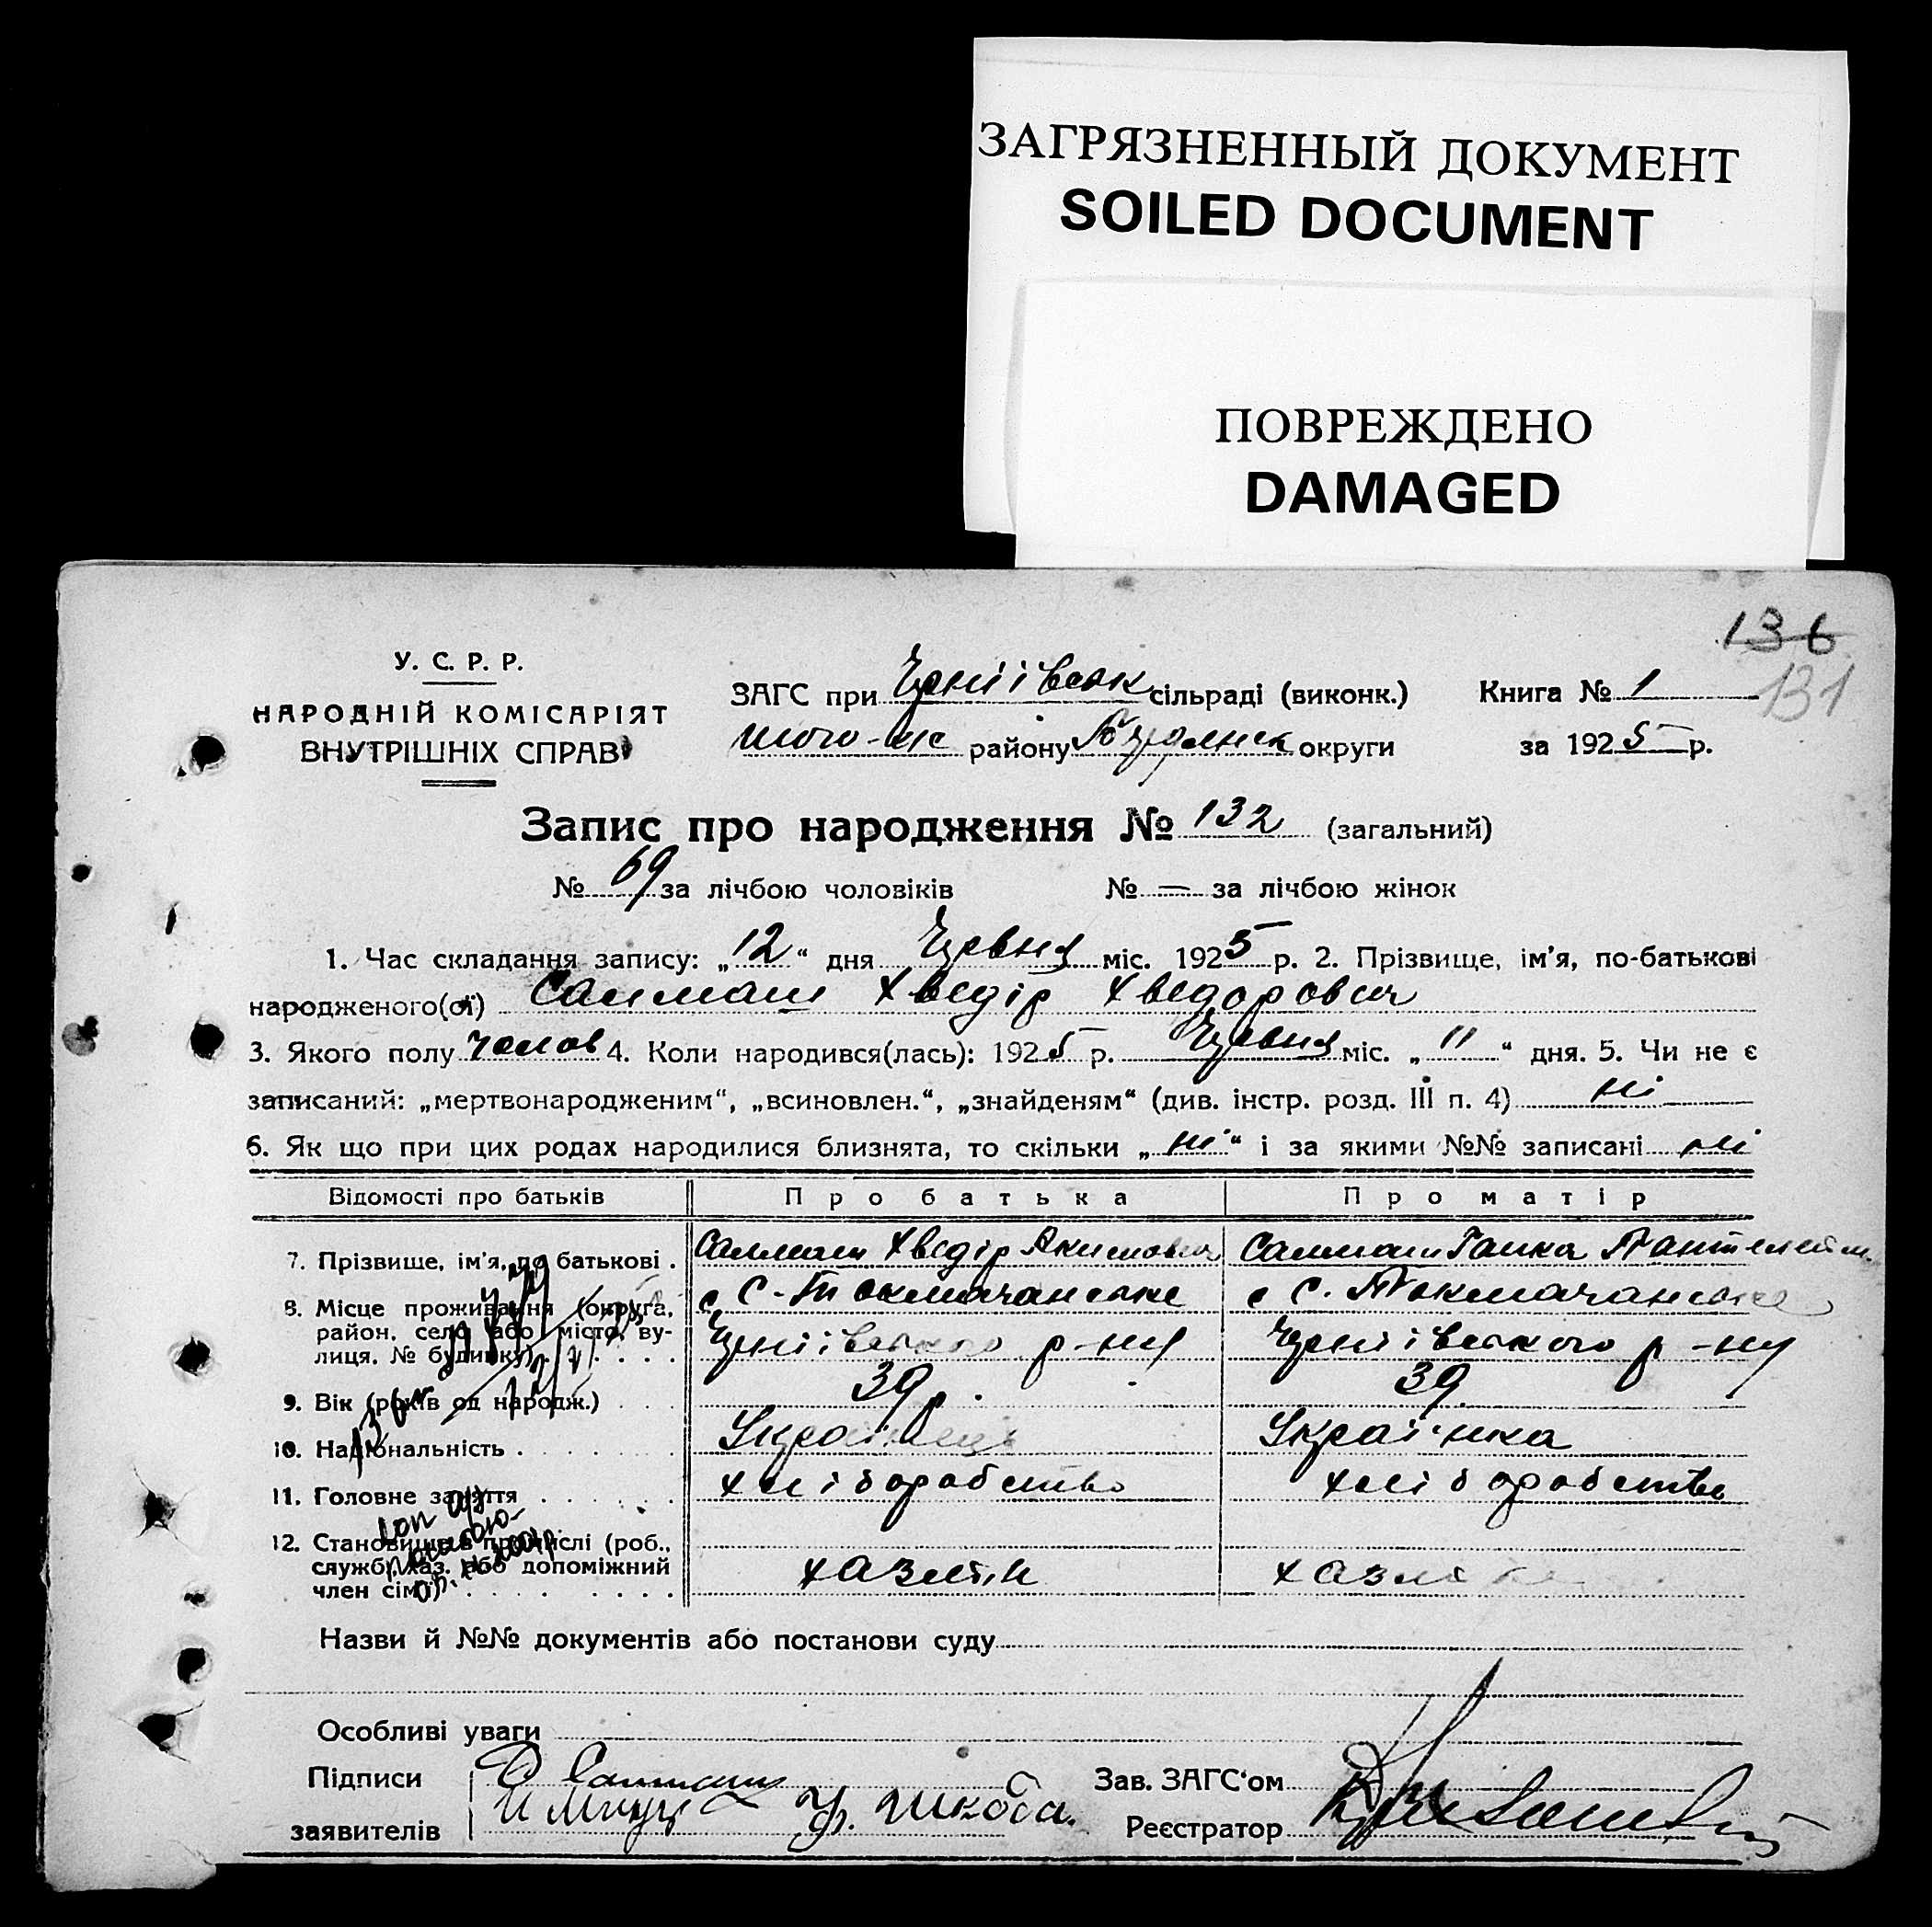 ЗАГРЯЗНЕННЫЙ ДОКУМЕНТ
SOILED DOCUMENT
ПОВРЕЖДЕНО
DAMAGED
136
131
У. С. Р. Р.
НАРОДНІЙ КОМІСАРІЯТ
ВНУТРІШНІХ СПРАВ
ЗАГС при сільраді (виконк.) Книга № 1
того-же району округи за 1925 р.
Запис про народження № 132 (загальний)
№ 69 за лічбою чоловіків № — за лічбою жінок
1. Час складання запису: „12“ дня Червня міс. 1925 р. 2. Прізвище, ім'я, по-батькові
народженого(ої) Салмаш Хведір Хведорович
3. Якого полу чолов 4. Коли народився(лась): 1925 р. Червня міс. „11“ дня. 5. Чи не є
записаний: „мертвонародженим“, „всиновлен.“, „знайденям“ (див. інстр. розд. III п. 4) ні
6. Як що при цих родах народилися близнята, то скільки „ні“ і за якими №№ записані ні
Відомості про батьків Про батька Про матір
7. Прізвише, ім'я, по батькові . Салмаш Хведір Акимович Салмаш Ганка Пантелейм.
8. Місце проживання (округа, с. Токмачанське с. Токмачанське
район, село або місто, ву-
лиця, № будинку) . . . . р-ну р-ну
9. Вік (років од народж.) . . . 39 р. 39
10. Національність . . . . Українець Українка
11. Головне заняття . . . . . хліборобство хліборобство
12. Становище в промислі (роб.,
службр. хаз. або допоміжний хазяїн
член сім'ї) . . . . . . .
Назви й №№ документів або постанови суду
Особливі уваги
Підписи Зав. ЗАГС'ом
заявителів Реєстратор